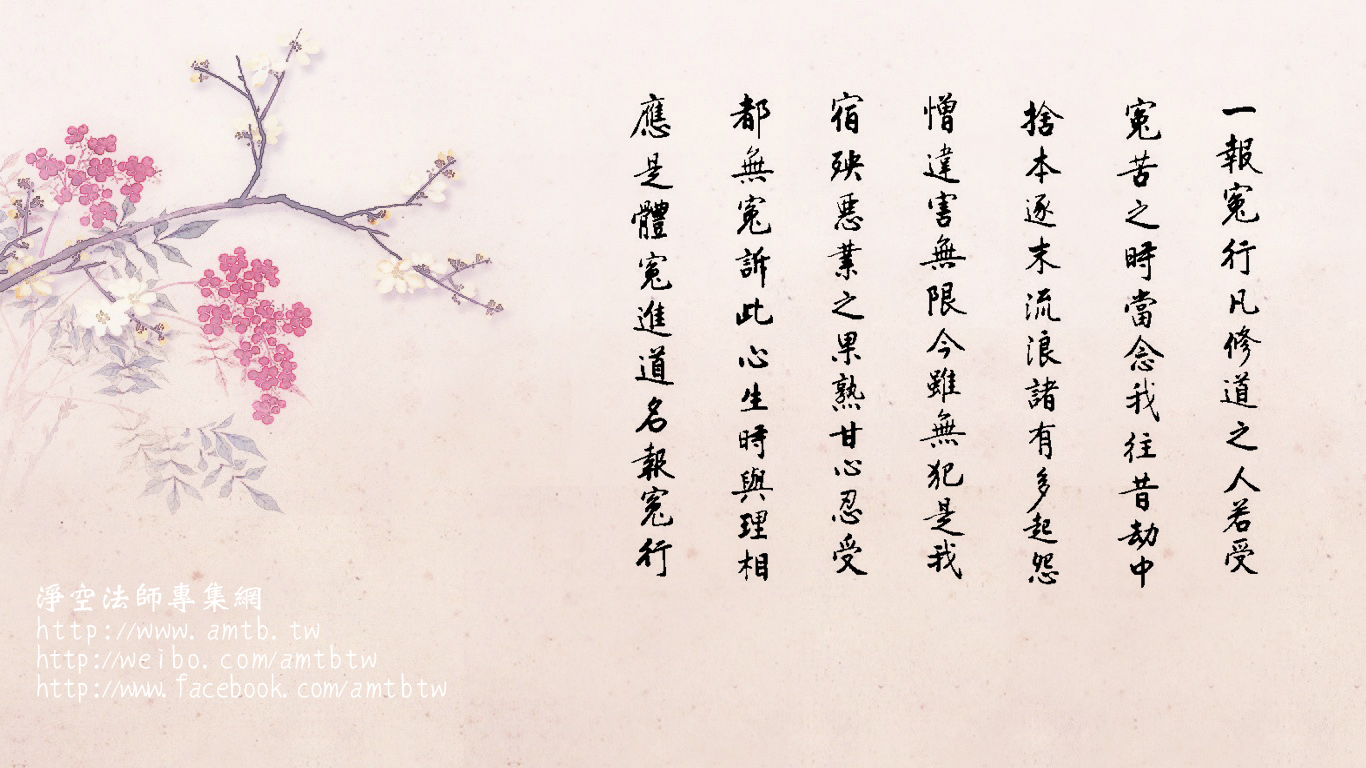 一報冤行凡修道之人若受
冤苦之時當念我往昔劫中
捨本逐末流浪諸有多起怨
憎違害無限今雖無犯是我
宿殃惡業之果熟甘心忍受
都無冤訴此心生時與理相
應是體冤進道名報冤行
淨空法師專集網
http://www.amtb.tw
http://weibo.com/amtbtw
http://www.facebook.com/amtbtw